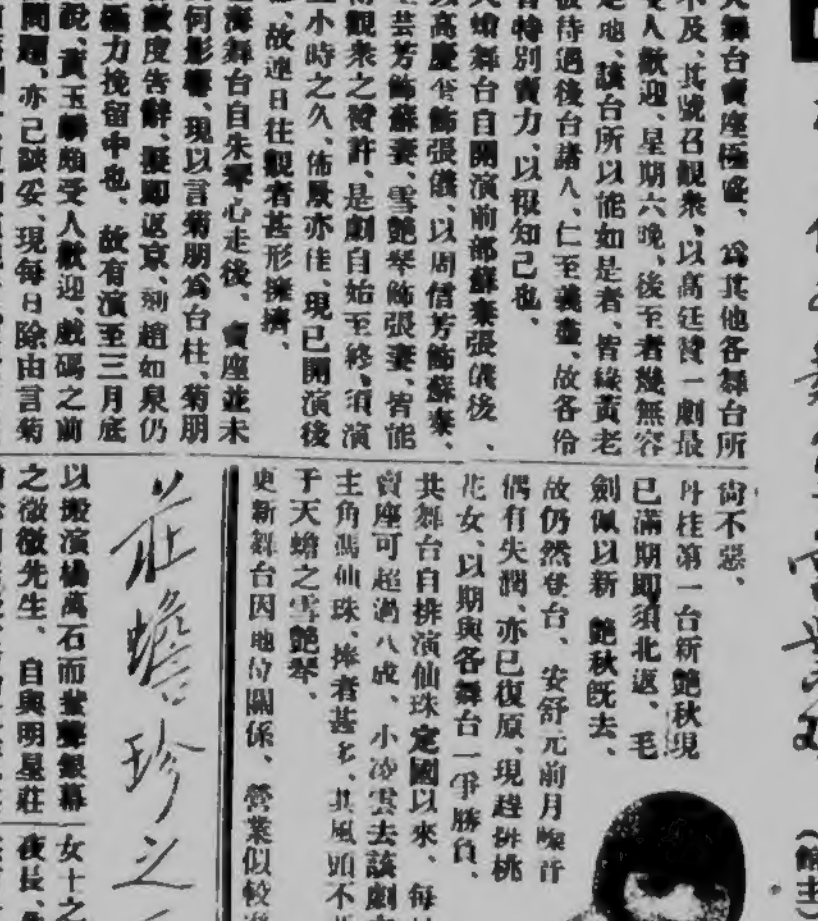 大舞台賣座極盛、爲其他各舞台所
不及、其號召觀衆、以高廷贊一劇最
受人歡迎、星期六晚、後至者幾無容
足地、該台所以能如是者、皆緣黃老
待過後台諸人、仁至義盡、故各伶
特別賣力、以報知己也、
天蟾舞台自開演前部蘇秦張儀後、
以高慶奎飾張儀、以周信芳飾蘇秦、
芸芳飾蘇妻、雪艷琴飾張妻、皆能
得觀衆之贊許、是劇自始至終、須演
小時之久、佈景亦佳、現已開演後
、故連日往觀者甚形擁擠、
上海舞台自朱琴心走後、賣座並未
何影響、現以言菊朋爲台柱、菊朋
數度告辭、擬即返京、刻趙如泉仍
極力挽留中也、故有演至三月底
說、黃玉麟頗受人歡迎、戲碼之前
問題、亦已談妥、現每日除由言菊
尙不惡、
丹桂第一台新艷秋現
已滿期即須北返、毛
劍佩以新艷秋旣去、
故仍然登台、安舒元前月嗓音
偶有失潤、亦已復原、現趕排桃
花女、以期與各舞台一爭勝負、
共舞台自排演仙珠定國以來、每
賣座可超過八成、小凌雲去該劇
主角馮仙珠、捧者甚多、其風頭不
于天蟾之雪艷琴、
更新舞台因地位關係、營業似較
莊蟾珍之
以搬演楊萬石而蜚聲銀幕
之徵徵先生、自與明星莊
女士之
夜長、
(館主)